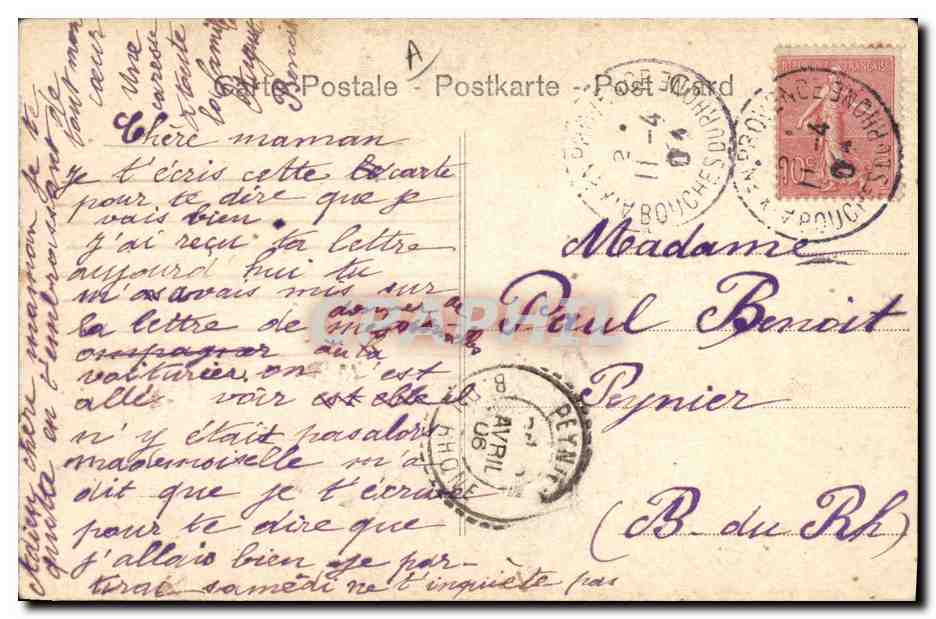 Carte Postale - Postkarte - Post Card
A
Chère maman
je t'écris cette carte
pour te dire que je
vais bien
J'ai reçu ta lettre
aujourd'hui tu
m'avais mis sur
la lettre de
au
voiturier on c'est
allé voir est elle il
n'y était pas alors
mademoiselle m'a
dit que je t'écrive
pour te dire que
j'allais bien je par-
tirai samedi ne t'inquiète pas
Adieu chère maman je te
quitte en t'embrassant de
tout mon
cœur
Une
caresse
a toute
la famille
Benoit
Madame
Paul Benoit
Peynier
(B. du Rh)
AIX-EN-PROVENCE BOUCHES DU RHONE
11-4
AIX-EN-PROVENCE BOUCHES DU RHONE
11-4
10c
PEYNIER
AVRIL
06
RHONE
CPAPHIL